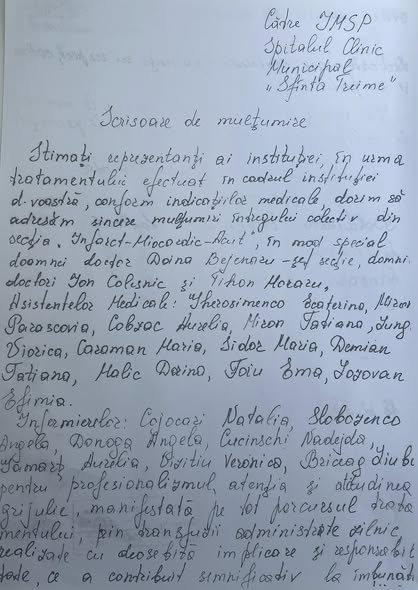 Către IMSP
Spitalul Clinic
Municipal
„Sfînta Treime"
Scrisoare de mulțumire
Stimați reprezentanți ai instituției, în urma
tratamentului efectuat în cadrul instituției
d-voastră, conform indicațiilor medicale, dorim să
adresăm sincere mulțumiri întregului colectiv din
secția „Infarct-Miocardic-Acut", în mod special
doamnei doctor Doina Bejenaru-șef secție, domni
doctori Ion Colesnic și Tihon Moraru,
Asistentelor Medicale: Gherosimenco Ecaterina, Miron
Parascovia, Cobzac Aurelia, Miron Tatiana, Lung
Viorica, Caraman Maria, Sidor Maria, Demian
Tatiana, Malic Dorina, Foiu Ema, Lozovan
Efimia.
Infirmierelor: Cojocari Natalia, Slobozenco
Angela, Donoga Angela, Cucinschi Nadejda,
Aurelia, Bizitiu Veronica, Briceag Liuba
pentru profesionalizmul, atenția și atitudinea
grijulie, manifestată pe tot parcursul trata
mentului, prin transfuzii administrate zilnic,
realizate cu deosebită implicare și responsabili
tate, ce a contribuit semnificativ la îmbunăti